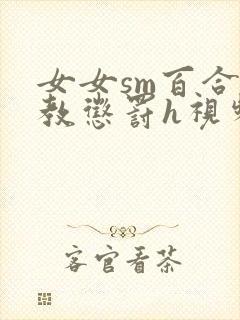 女女sm百合
教懲罰h視
客官看茶